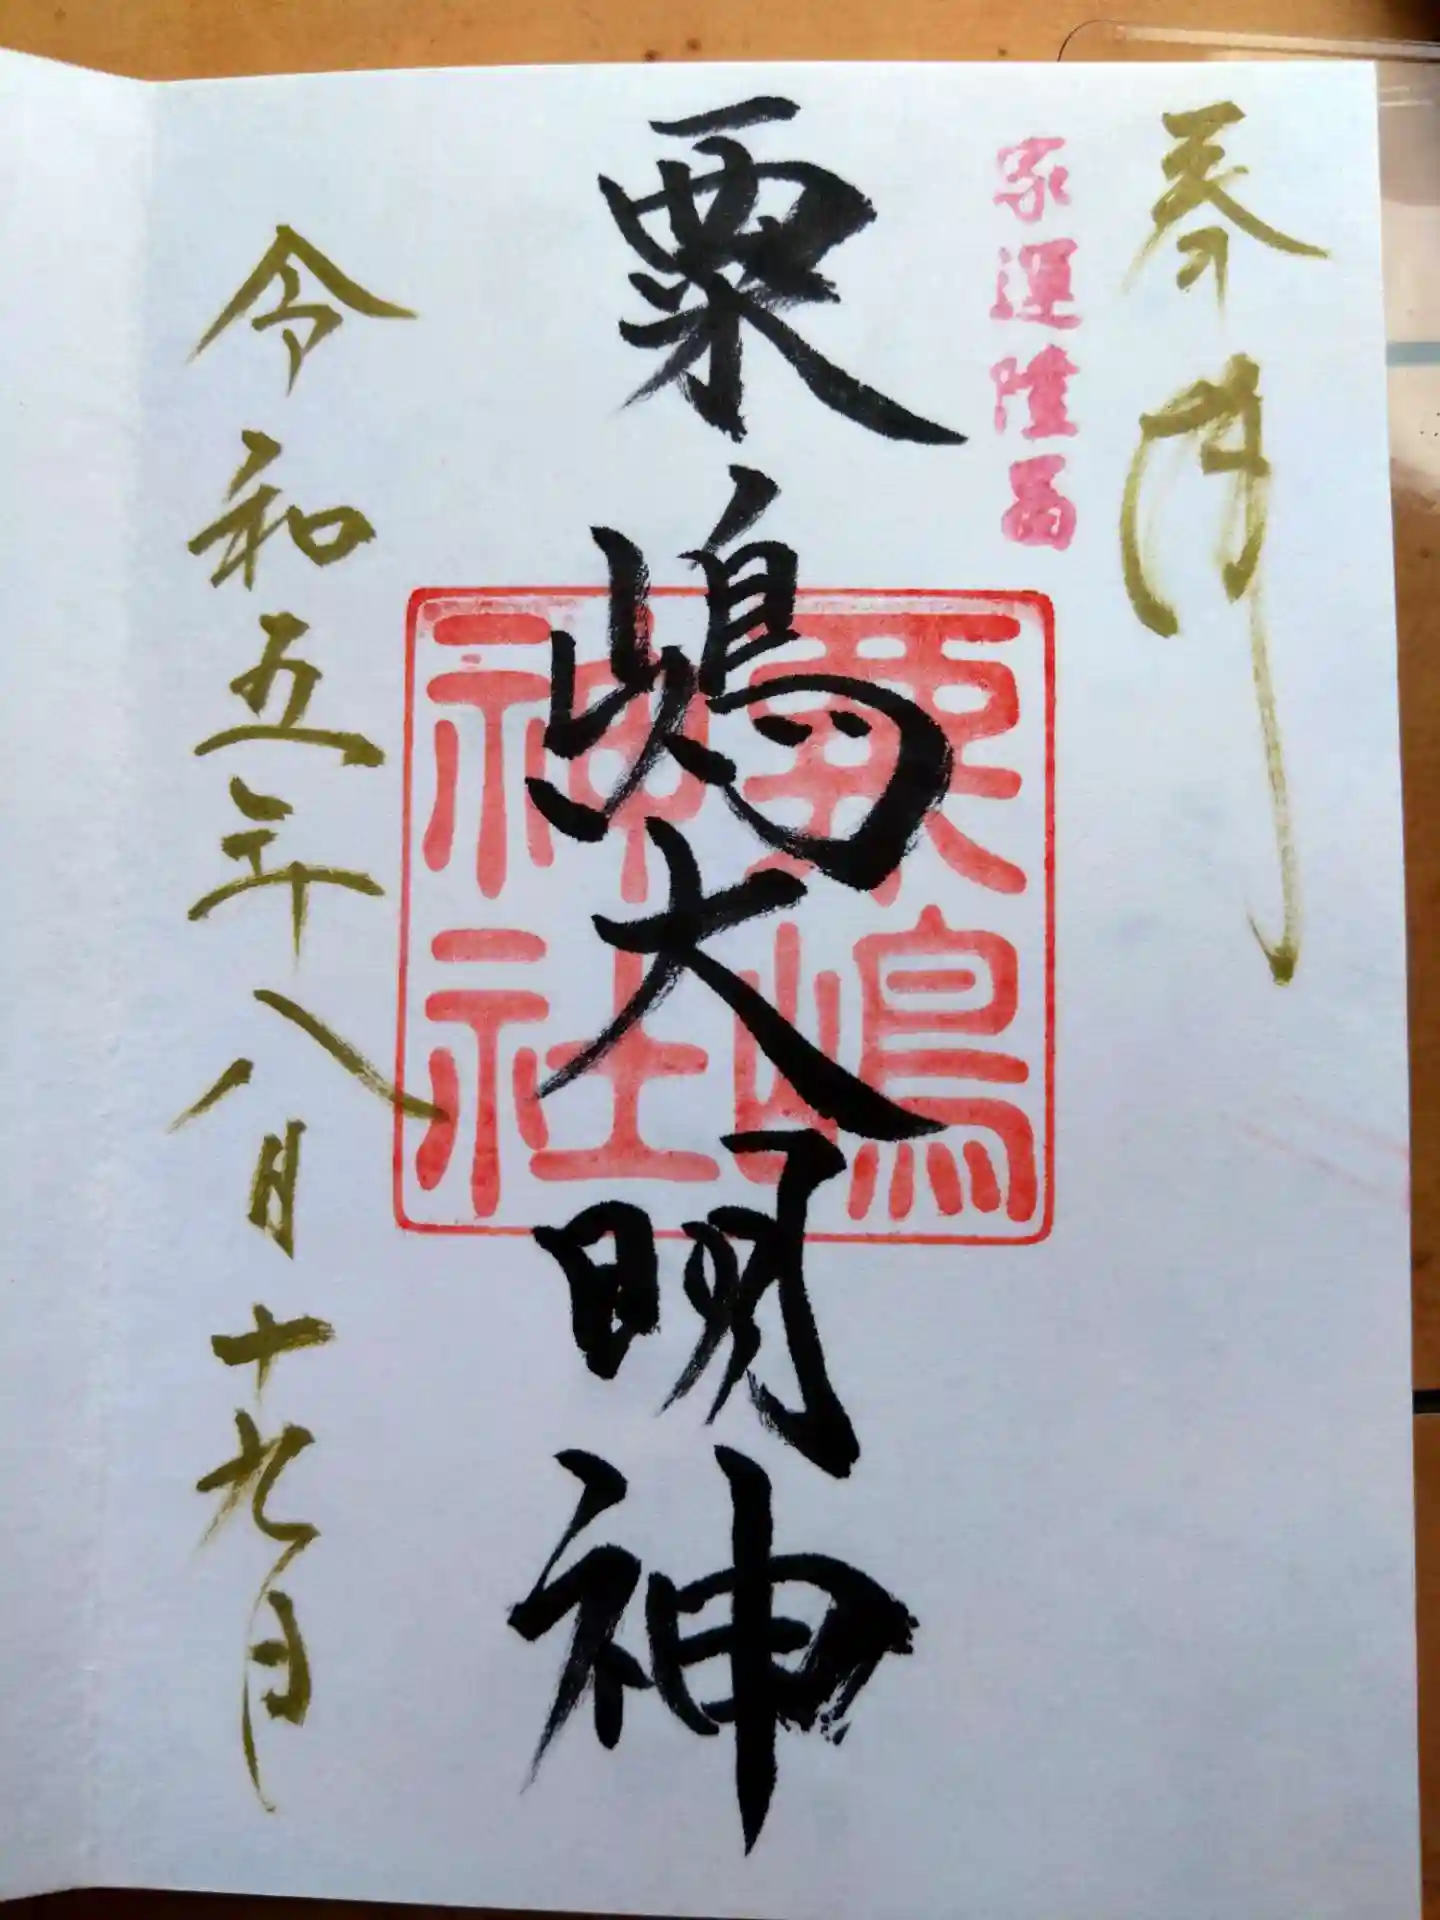 奉拝
家運隆昌
粟嶋大明神
粟嶋
神社
令和五年八月十九日